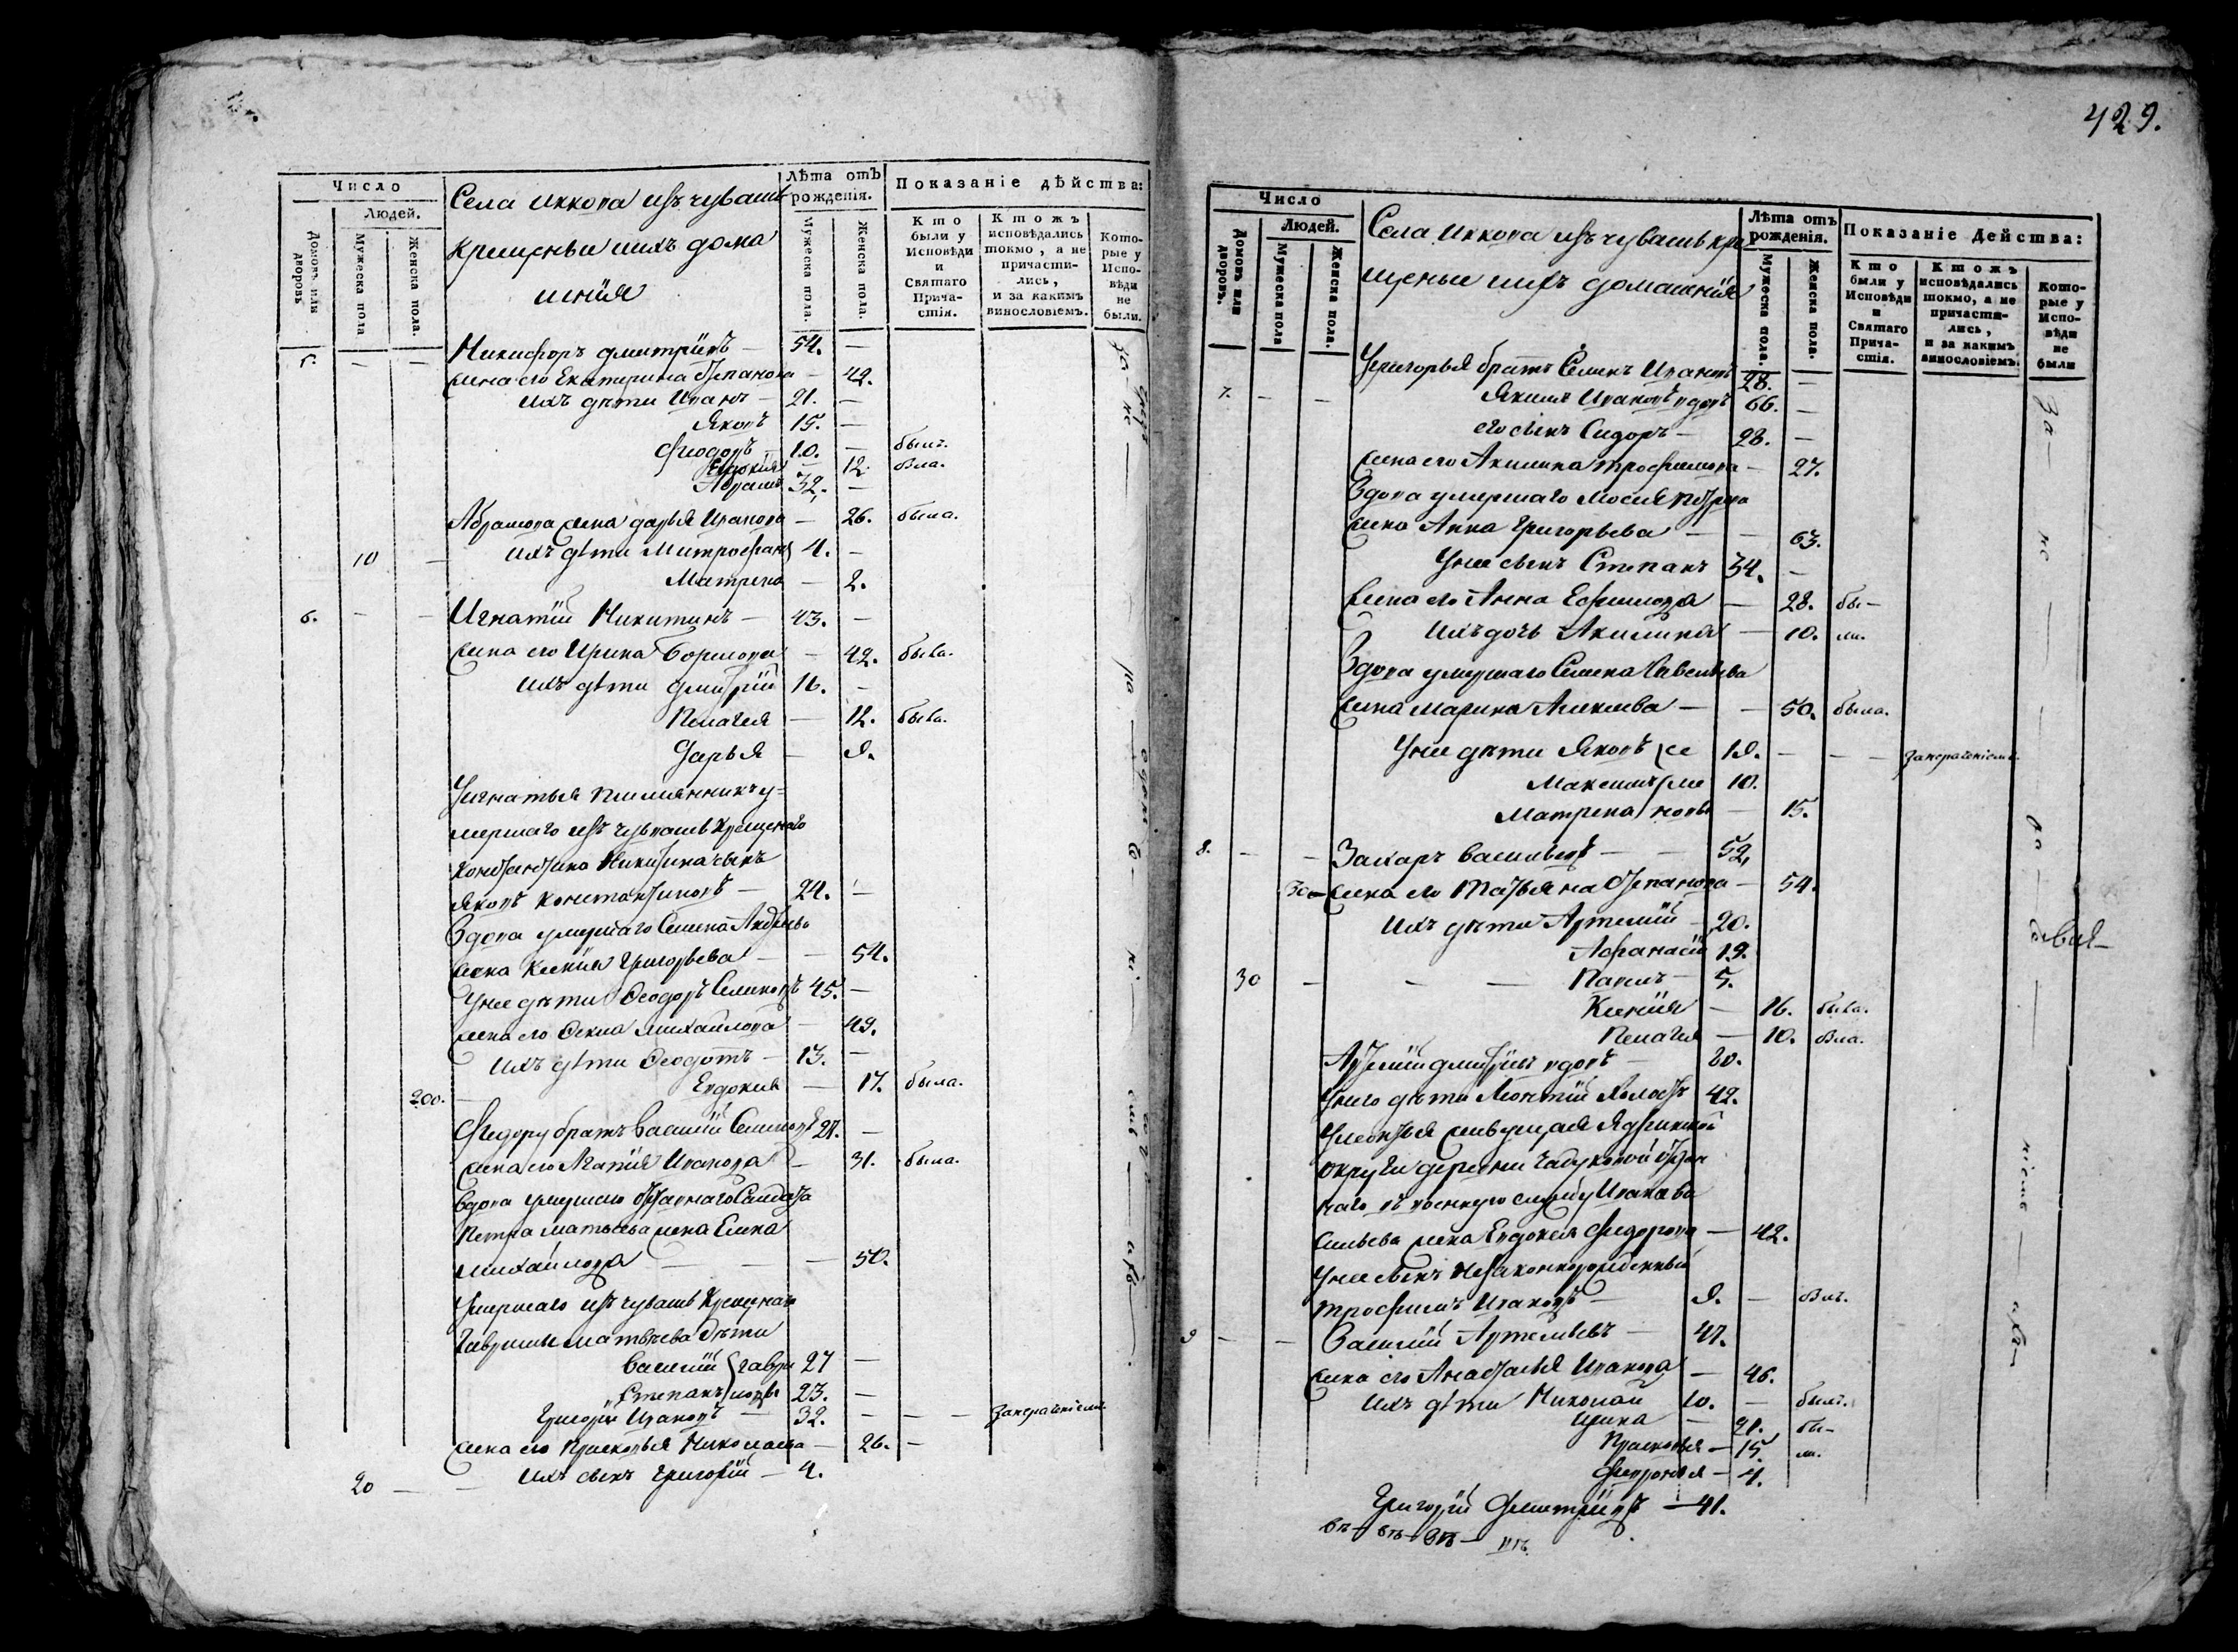 Число
Людей.
Домовъ или дворовъ
Мужеска пола
Женска пола.
Села Иккова изъ чувашъ
крещеныи ихъ дома
шнія
Лѣта отъ рожденія.
Мужеска пола.
Женска пола.
Показаніе дѣйства:
Кто были у Исповѣди и Святаго Причастія.
Ктожъ исповѣдались токмо, а не причастились, и за какимъ винословіемъ.
Которые у Исповѣди не были.
5. — — Никифоръ Дмитріевъ — 54. —
жена его Екатерина Степанова — 42.
ихъ дѣти Иванъ — 21. —
Яковъ 15. —
Феодоръ 10. — былъ.
Евдокія — 12. была.
Абрамъ 32. —
Абрамова жена Дарья Иванова — 26. была.
10 — ихъ дѣти Митрофанъ 4. —
Матрена — 2.
6. — — Игнатій Никитинъ — 43. —
жена его Ирина Борисова — 42. была.
ихъ дѣти Дмитрій 16. —
Пелагея — 12. была.
Дарья — 9.
У Игнатья племянникъ у=
мершаго изъ чувашъ крещенаго
Константина Никитина сынъ
Яковъ Константиновъ — 24. —
Вдова умершаго Семена Андреева
жена Ксенія Григорьева — — 54.
У нее дѣти Феодоръ Семеновъ 45. —
жена его Фекла Михайлова — 49.
ихъ дѣти Феодотъ — 13. —
200. — Евдокия — 17. была.
Федору братъ Василій Семеновъ 27. —
жена его Агафія Иванова — 31. была.
Вдова умершаго отставнаго Салдата
Петра Матвеева жена Елена
Михайлова — — — 50.
Умершаго изъ чувашъ крещенаго
Гаврилы Матвеева дѣти
Василій } Гаври 27 —
Степанъ } ловы 23. —
Григорій Ивановъ — 32. — — — за нераченіемъ.
жена его Прасковья Николаева — 26. —
20 — — ихъ сынъ Григорій — 4.
429.
Число
Людей.
Домовъ или дворовъ.
Мужеска пола
Женска пола.
Села Иккова изъ чувашъ кре
щеные ихъ домашнія
Лѣта отъ рожденія.
Мужеска пола.
Женска пола.
Показаніе Действа:
Кто были у Исповѣди и Святаго Причастія.
Ктожъ исповѣдались токмо, а не причастились, и за какимъ винословіемъ.
Которые у Исповѣди не были
У Григорья братъ Семенъ Ивановъ 28. —
7. — — Якимъ Ивановъ вдовъ 66. —
его сынъ Сидоръ — 28. —
жена его Акилина Трофимова — 27.
Вдова умершаго Мосея Петрова
жена Анна Григорьева — — 63.
У нее сынъ Степанъ 34. —
жена его Анна Ефимова — 28. бы-
ихъ дочь Акилина — 10. ли.
Вдова умершаго Семена Савельева
жена Марина Алексеева — — 50. была.
У нее дѣти Яковъ } Се 19. — — — за нераченіемъ.
Максимъ } ме 10.
Матрена } новы — 15.
8. — — Захаръ Васильевъ — — 52.
30 — жена его Татьяна Степанова — 54.
ихъ дѣти Артемій — 20.
Афанасій 19.
30 — — — Павелъ — 5.
Ксенія — 16. была.
Пелагея — 10. была.
Артемій Дмитріевъ вдовъ — 80.
У него дѣти Леонтій холостъ 42.
У Леонтья живущая Ядринской
округи деревни
въ военную службу Ивана Ва
сильева жена Евдокея Федорова — 42.
У нее сынъ незаконнорожденный
Трофимъ Ивановъ — 9. — былъ.
9 — — Василій Артемьевъ — 47.
жена его Анастасья Иванова — 46.
ихъ дѣти Николай 10. — былъ.
Ирина — 21. бы-
Прасковья — 15. ли.
Февронья — 4.
Григорій Дмитріевъ — 41.